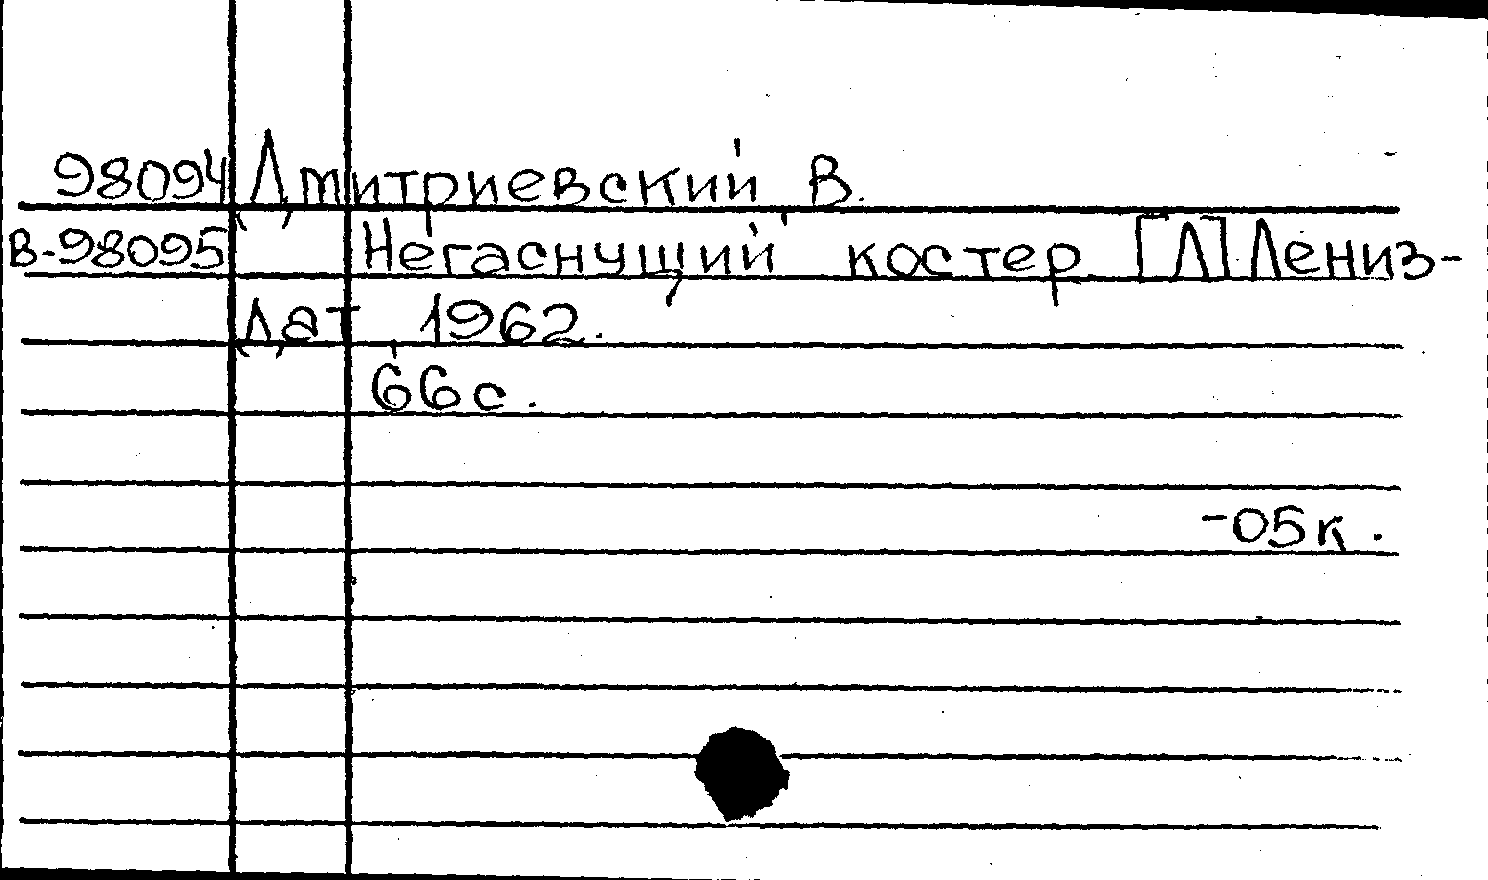 98094 Дмитриевский В.
В-98095 Негаснущий костер. [Л] Лениз-
дат, 1962.
66с.
-05к.